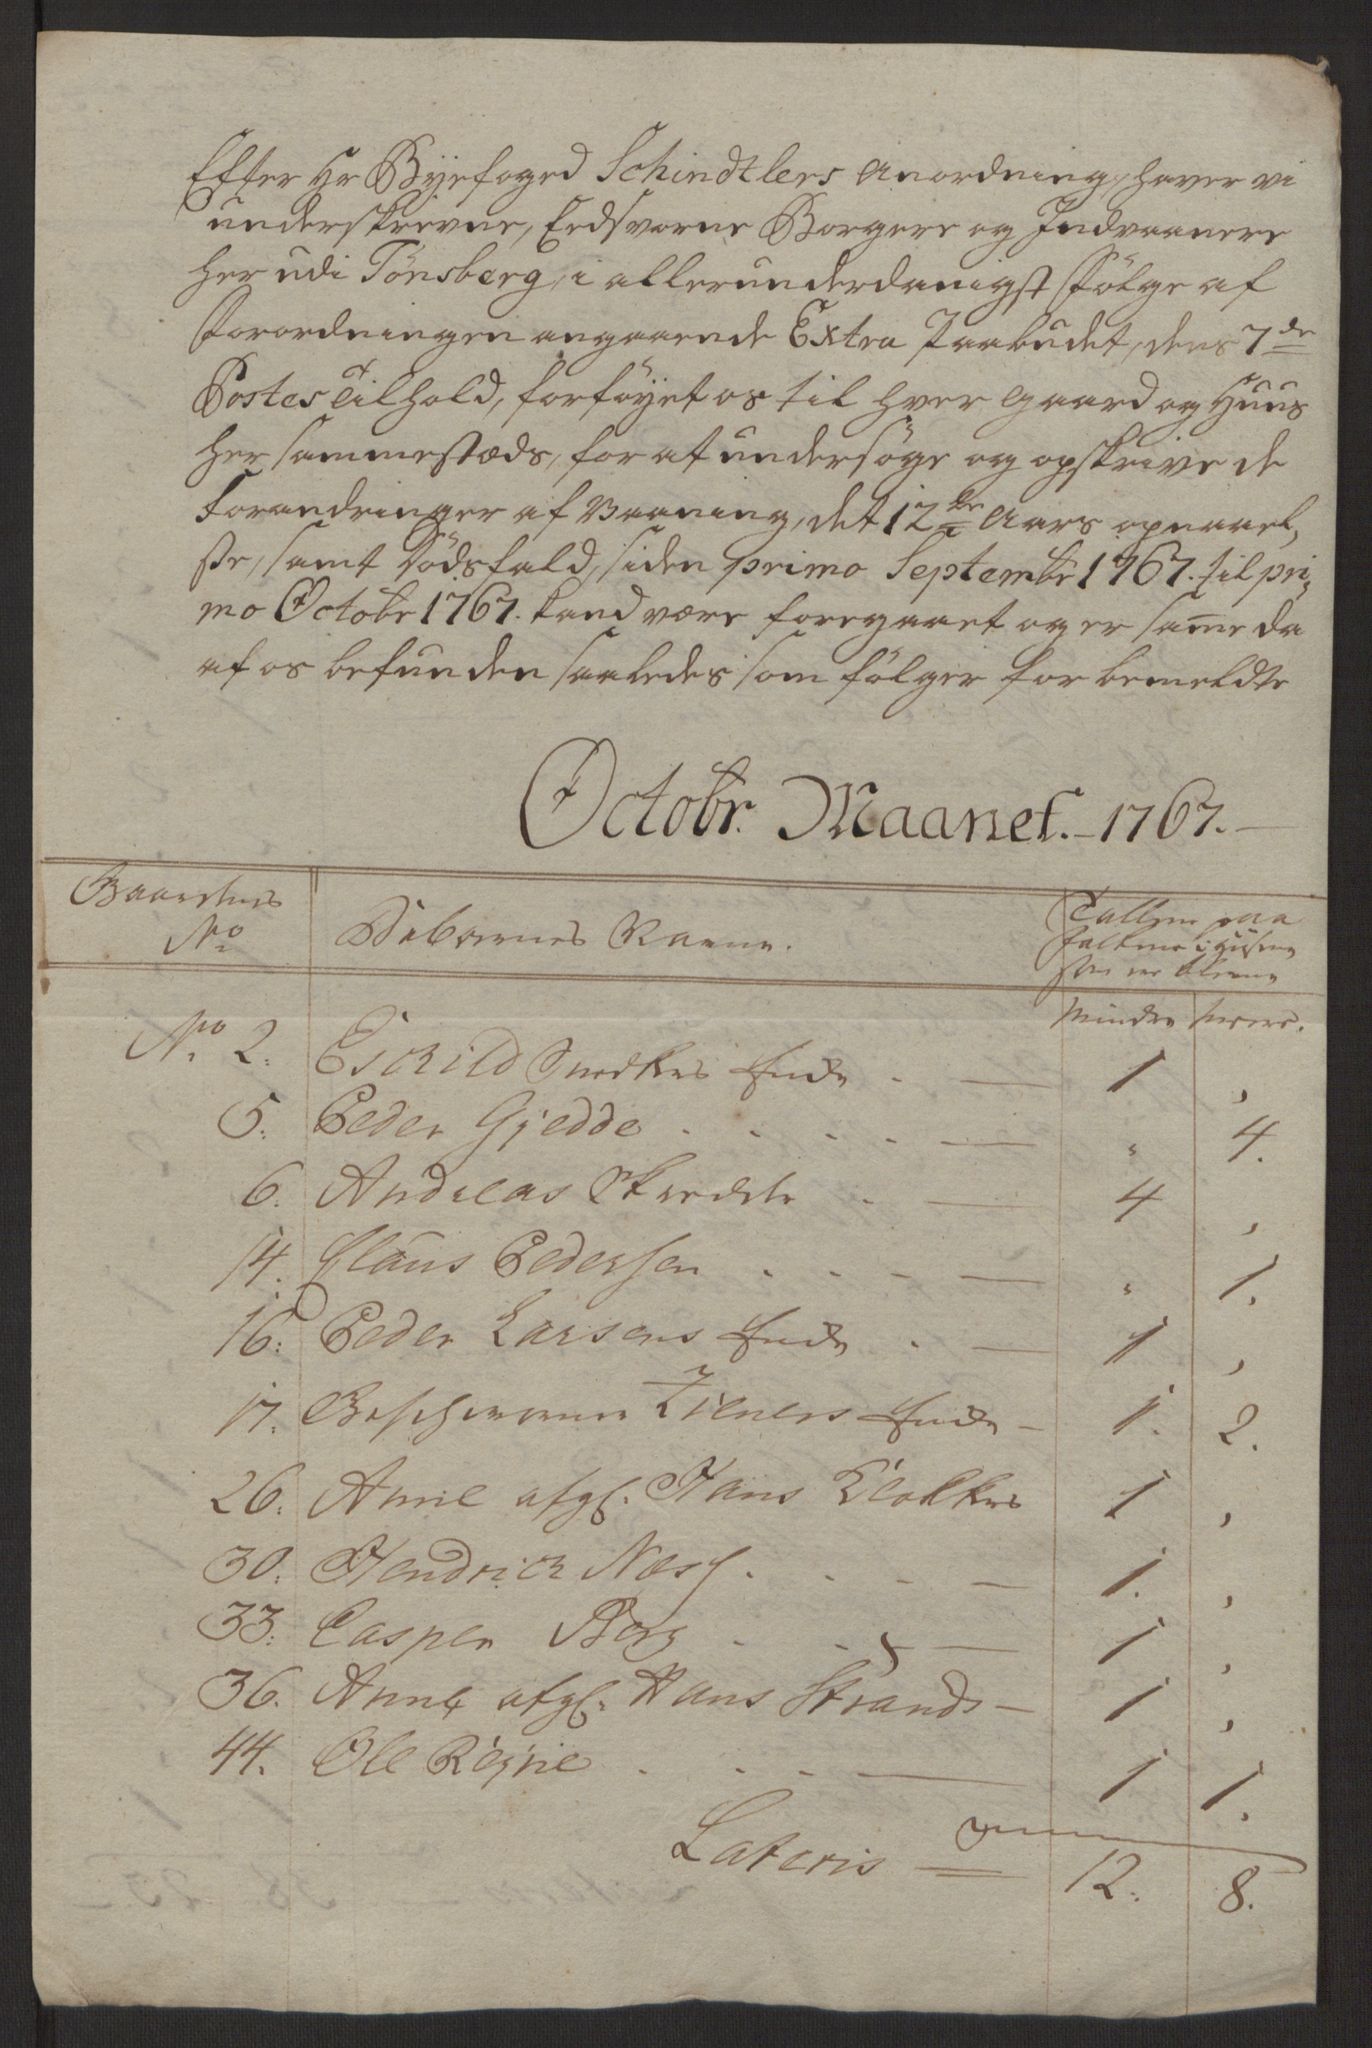 Efter Hr Byefoged Schindtlers Anordning, haver vi
underskrevne, Eedsvorne Borgere og Indvaanere
her udi Tönsberg, i allerunderdanigst Fölge af
Forordningen angaaende Extra Paabudet, dens 7de
Postes Tilhold, forföyet os til hver Gaard og Huus
her sammestæds, for at undersöge og opskrive de
Forandringer af Vaaning, det 12te Aars opnaael,
se, samt Dödsfald, siden primo Septembr 1767. til pri,
mo Octobr 1767. kand være foregaaet og er same da
af os befunden saaledes som fölger for bemeldte
Octobr. Maanet. 1767.
Gaardenes
No
Beboernes Navne.
Tallene paa
Folkene i Husene
som ere blevne
Mindre fleere.
No. 2. Eschild Snedkers Enke . — 1 ,
5. Peder Gjedde . . . . — " 4.
6. Andreas Skredder . — 4 ,
14. Claus Pedersen . . . . — " 1.
16. Peder Larsens Enke . — 1 ,
17. Zieners Enke — 1. 2.
26. Anne afgl. Hans Klokkers 1 ,
30. Hendrich Næss . . . — 1. ,
33. Casper Borg . . . — 1 ,
36. Anne afgl. Hans Strands — 1 ,
44. Ole Røyne . . . — 1 1.
Lateris — 12. 8.